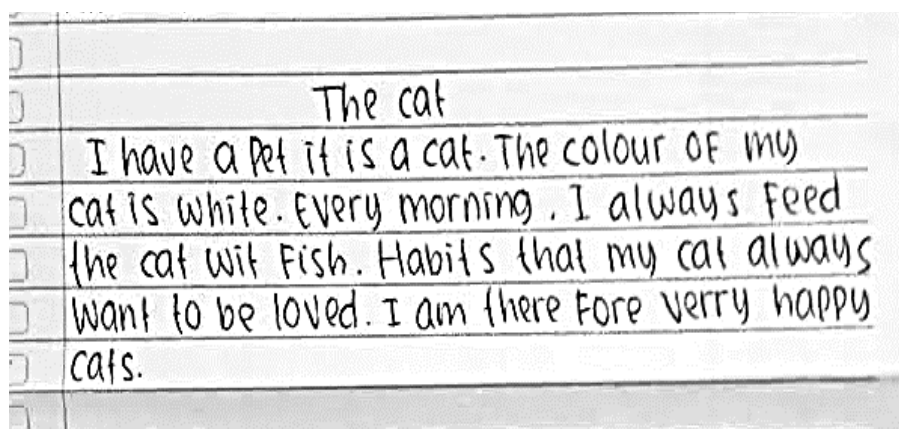 The cat
I have a Pet it is a cat. The colour of my
cat is white. Every morning. I always Feed
the cat wit Fish. Habits that my cat always
want to be loved. I am there Fore verry happy
cats.